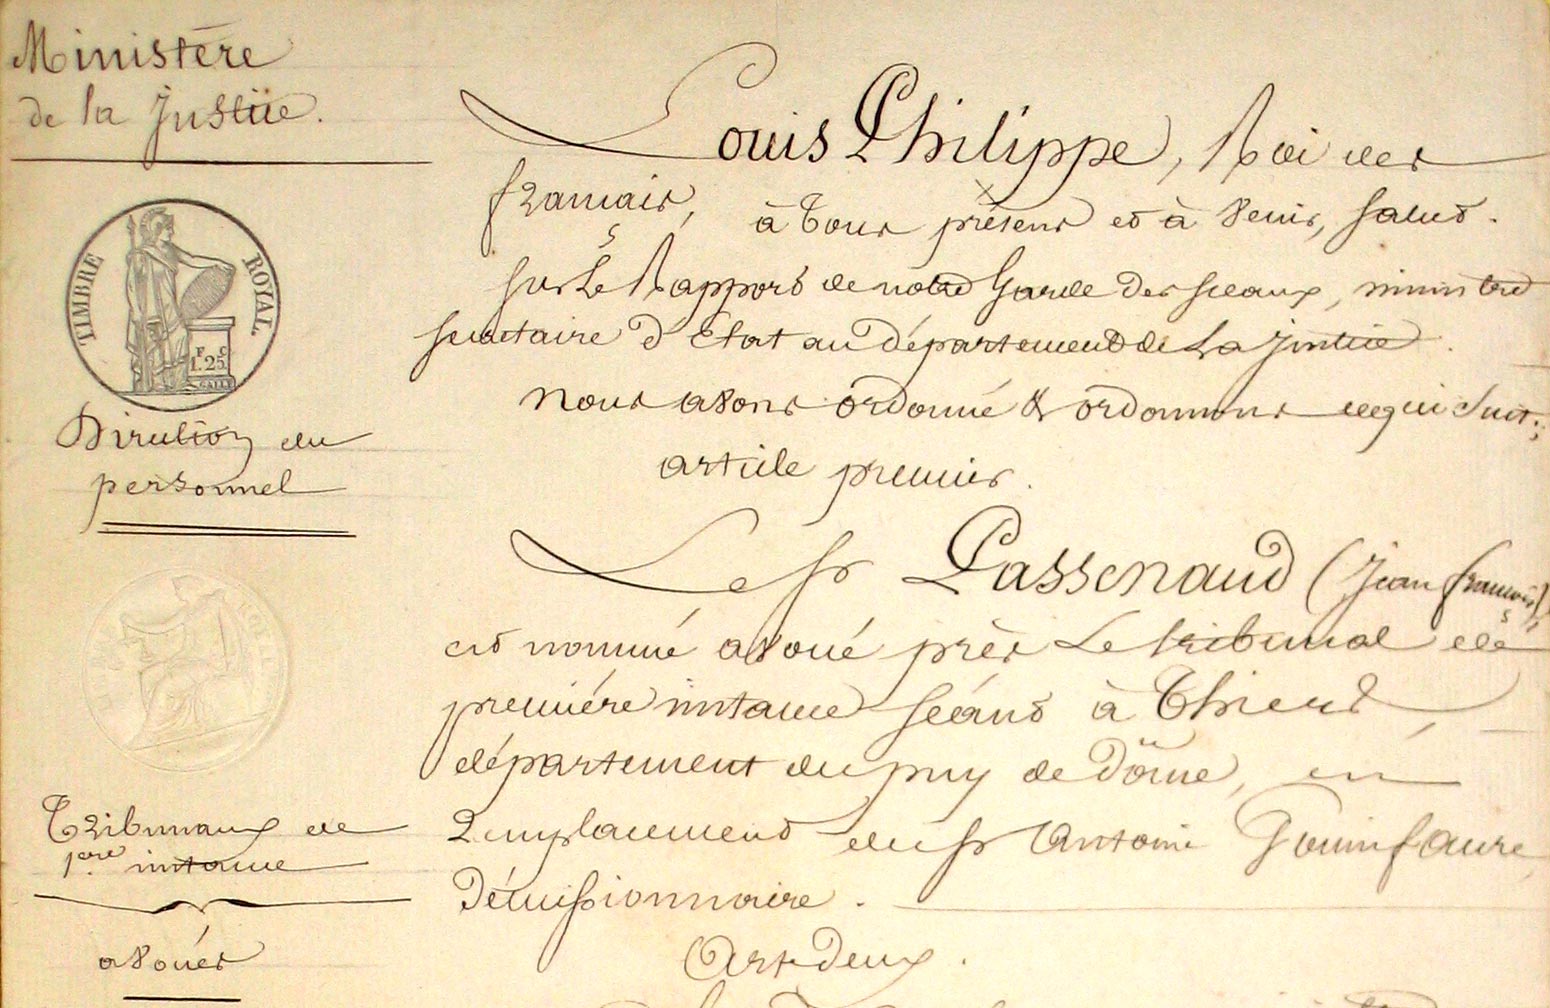 Ministère
de la Justice.
TIMBRE ROYAL.
F C
1.25
Direction du
personnel
Tribunaux de
1ere instance
avoués
Louis Philippe, Roi des
français, à tous présens et à venir, salut.
sur Le Rapport de notre Garde des sceaux, ministre
secrétaire d'Etat au département de La justice.
nous avons ordonné & ordonnons ce qui suit:
article premier.
Le sr Passenaud (jean françois)
est nommé avoué près Le tribunal de
première instance séant à Thiers
département du puy de Dôme, en
Remplacement du sr Antoine
démissionnaire.
Art deux.